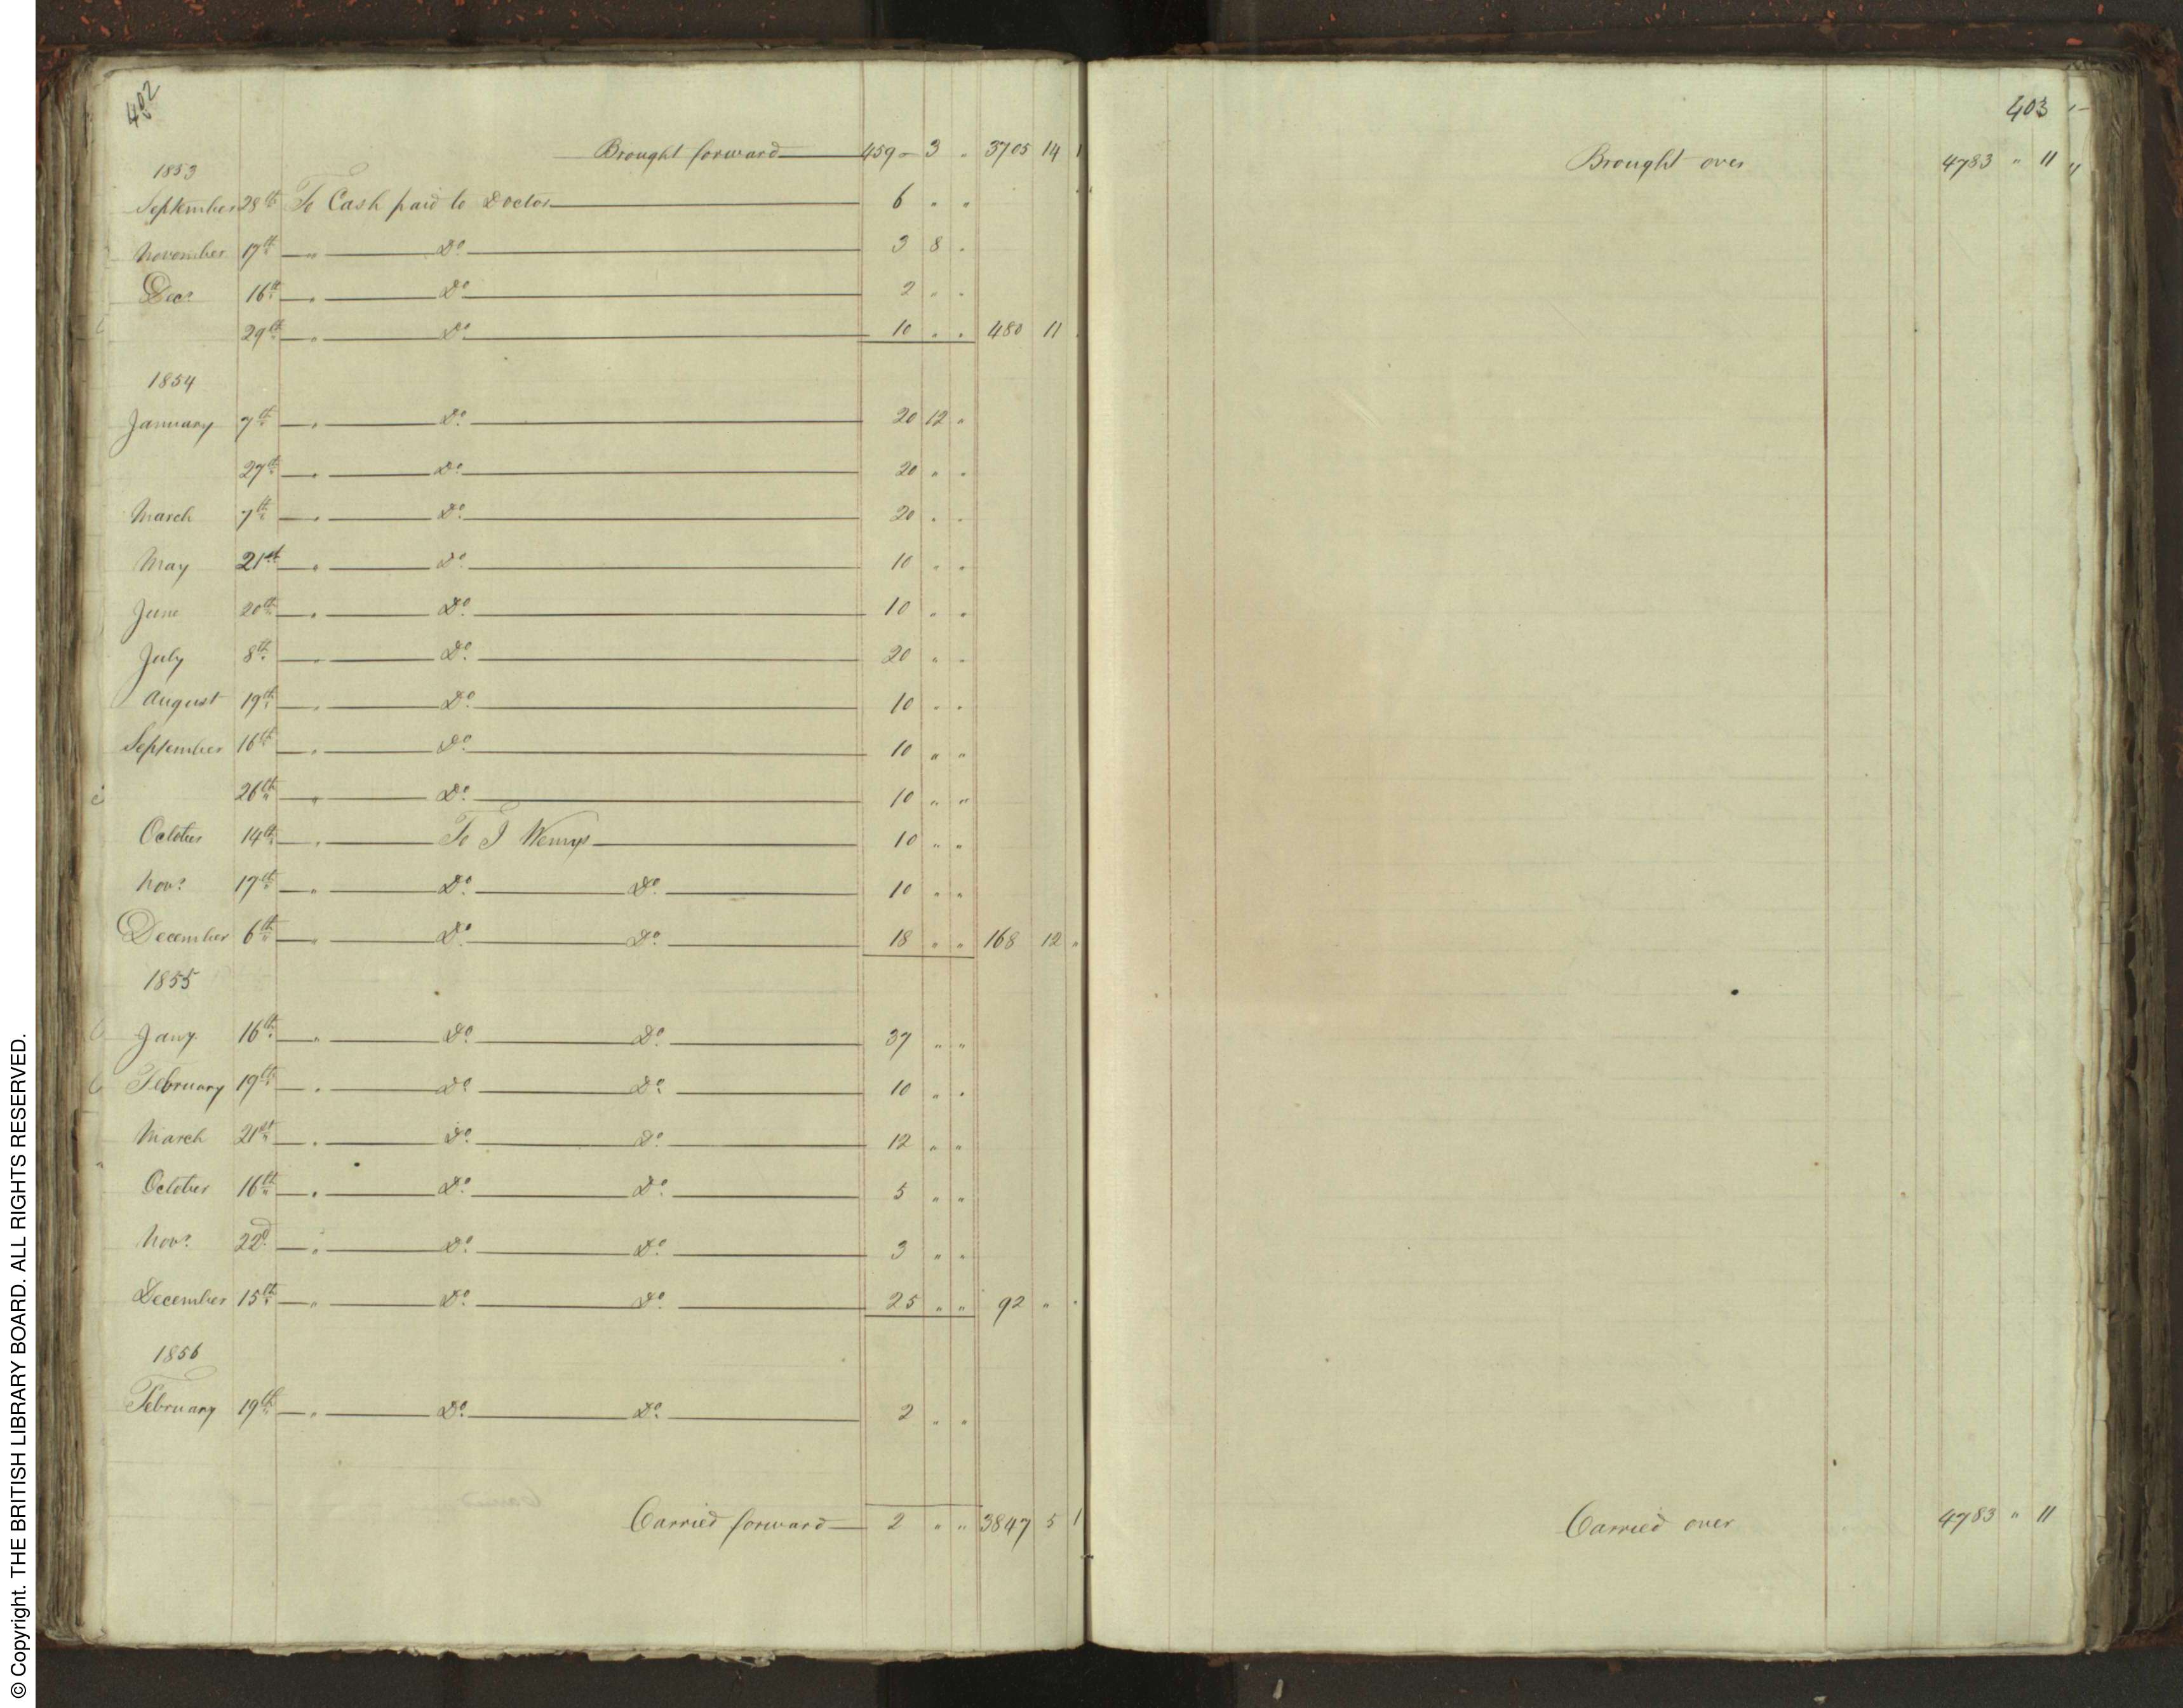 402
Brought forward 459 - 3 " 3705 14 1
1853
September 28th To Cash paid to Doctor 6 " "
November 17th " Do 3 8 "
Decr 16th " Do 2 " "
29th " Do 10 " " 480 11 "
1854
January 7th " Do 20 12 "
27th " Do 20 " "
March 7th " Do 20 " "
May 21st " Do 10 " "
June 20th " Do 10 " "
July 8th " Do 20 " "
August 19th " Do 10 " "
September 16th " Do 10 " "
26th " Do 10 " "
October 14th " To J Wemys 10 " "
Novr 17th " Do Do 10 " "
December 6th " Do Do 18 " " 168 12 "
1855
Jany 16th " Do Do 37 " "
February 19th " Do Do 10 " "
March 21st " Do Do 12 " "
October 16th " Do Do 5 " "
Novr 22d " Do Do 3 " "
December 15th " Do Do 25 " " 92 " "
1856
February 19th " Do Do 2 " "
Carried forward 2 " " 3847 5 1
403
Brought over 4783 " 11 "
Carried over 4783 " 11
© Copyright. THE BRITISH LIBRARY BOARD. ALL RIGHTS RESERVED.